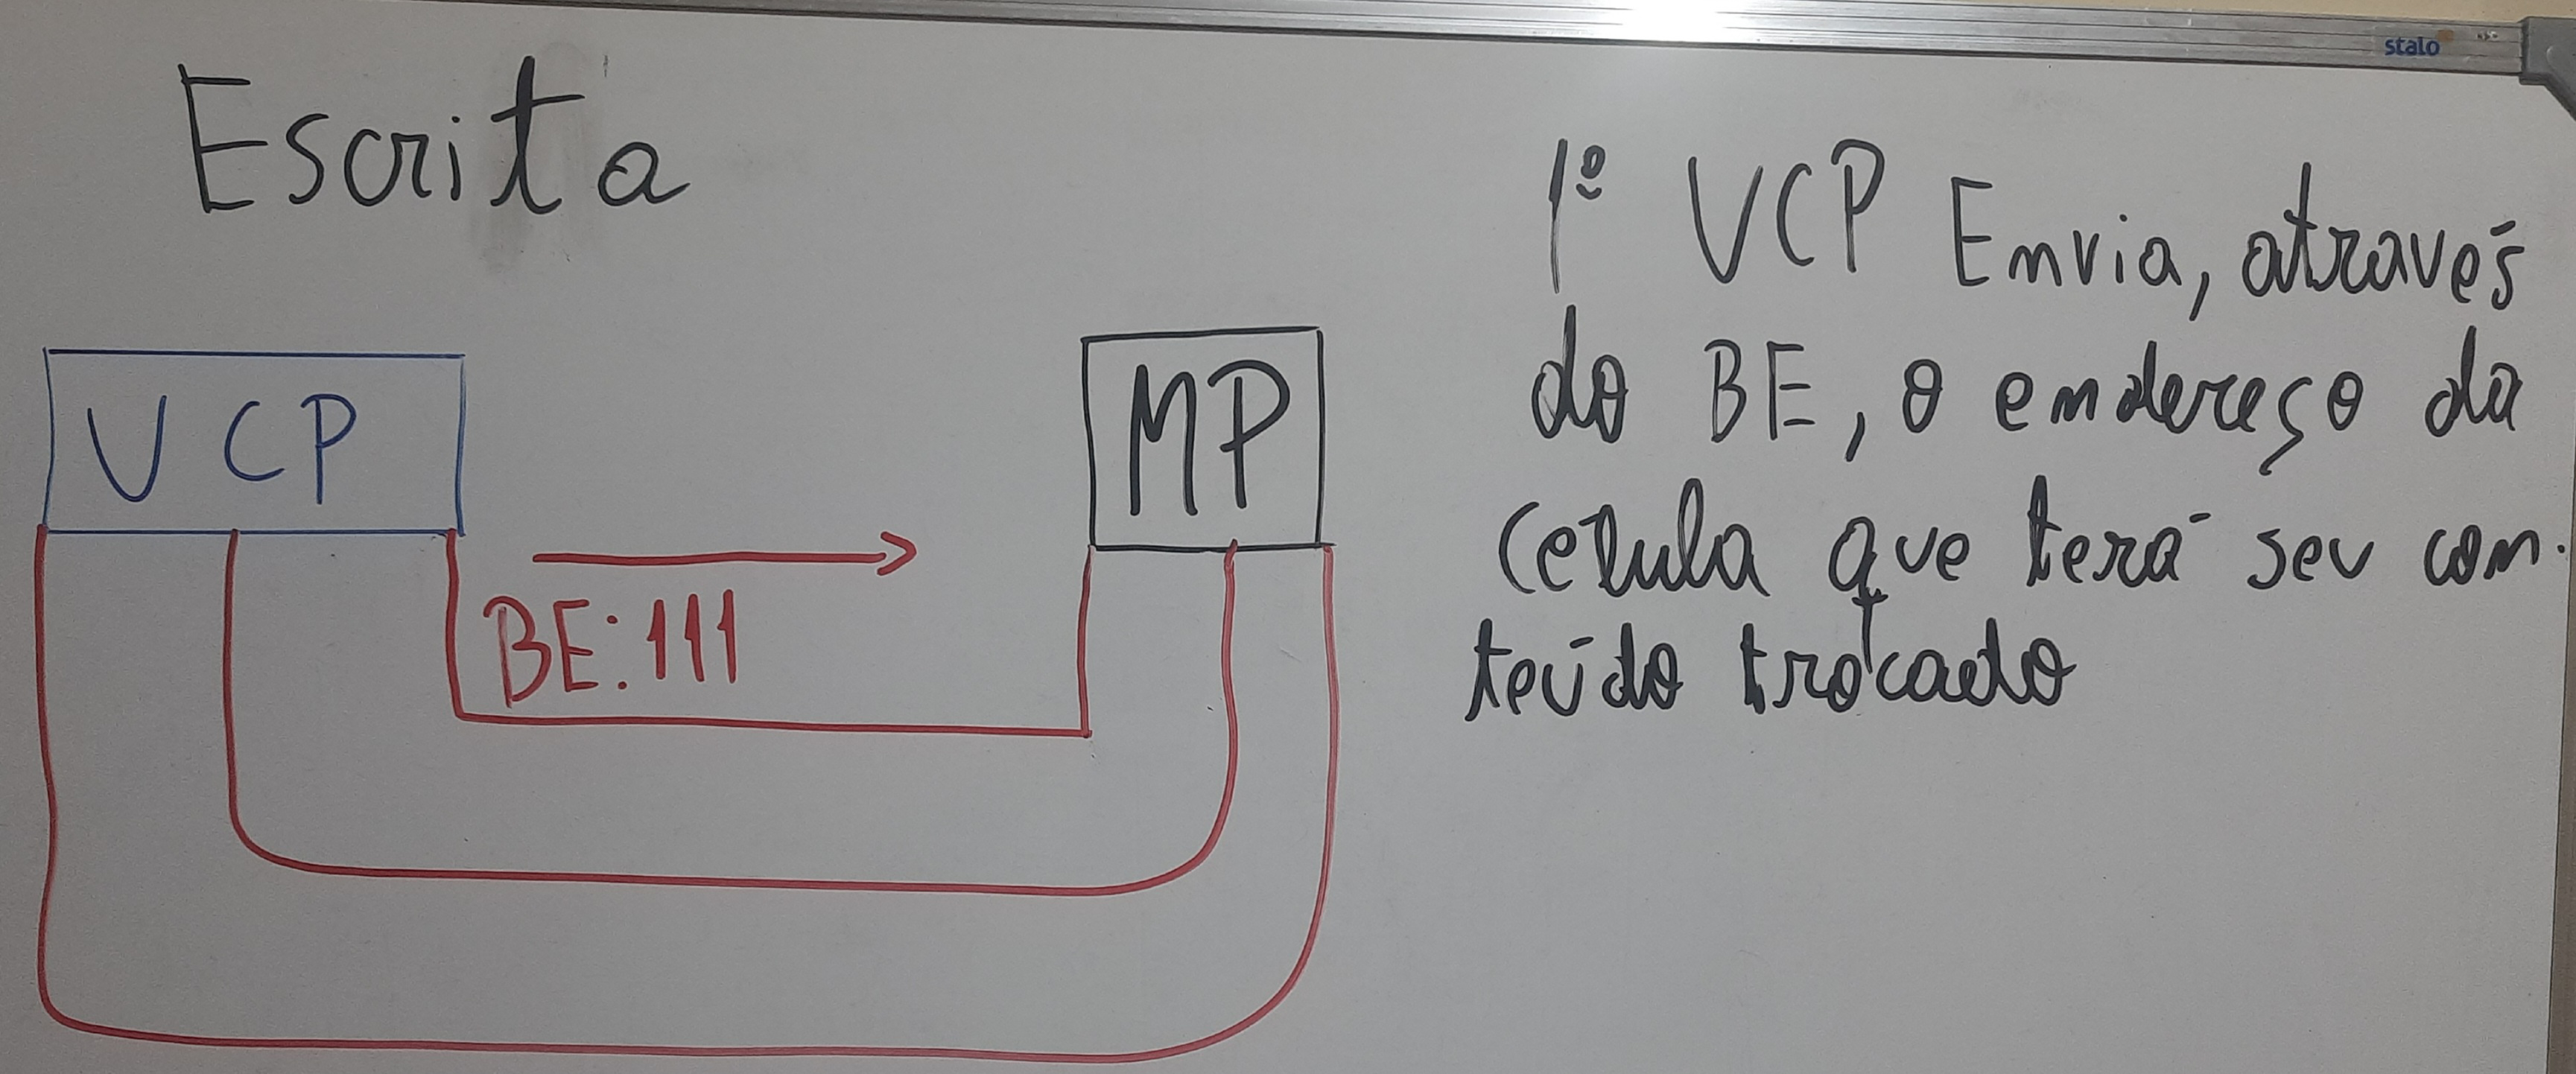 stalo
Escrita
UCP
MP
BE:111
1º UCP Envia, através
do BE, o endereço da
celula que terá seu con-
teúdo trocado